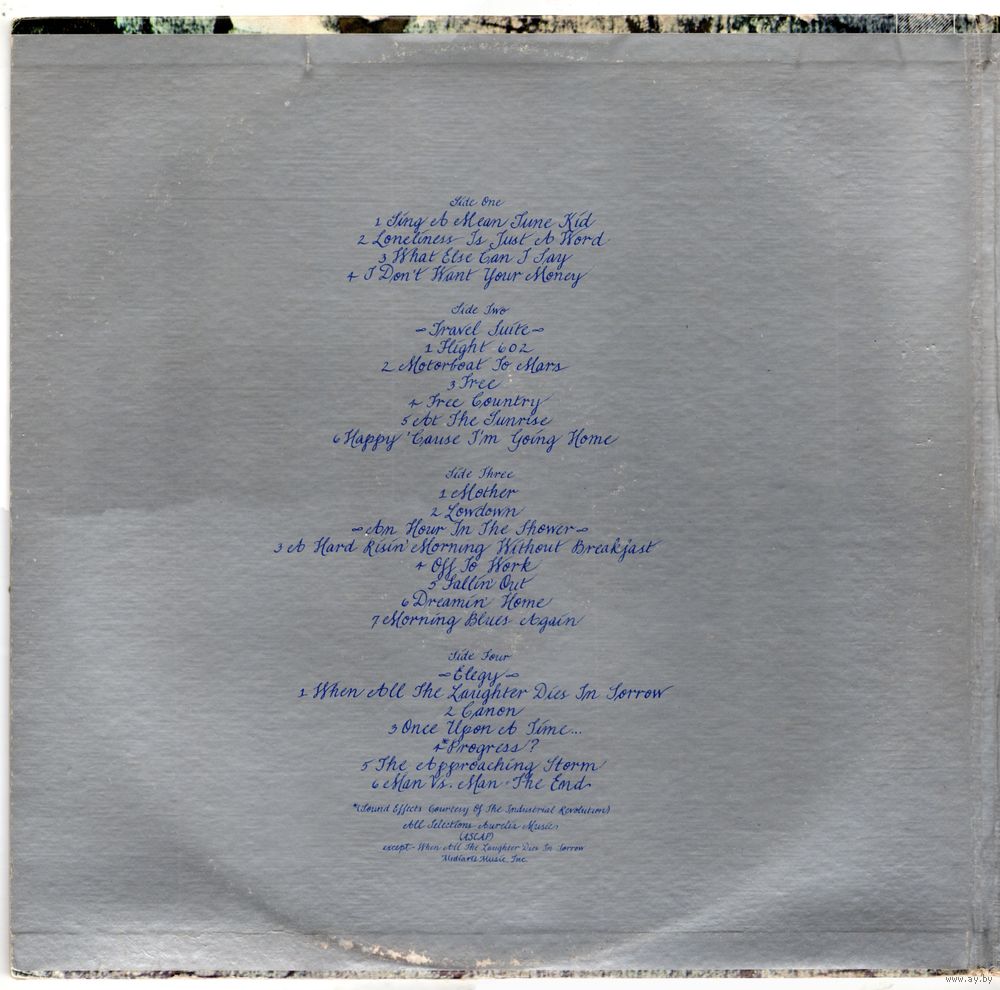 Side One
1 Sing A Mean Tune Kid
2 Loneliness Is Just A Word
3 What Else Can I Say
4 I Don't Want Your Money
Side Two
~Travel Suite~
1 Flight 602
2 Motorboat To Mars
3 Free
4 Free Country
5 At The Sunrise
6 Happy 'Cause I'm Going Home
Side Three
1 Mother
2 Lowdown
~An Hour In The Shower~
3 A Hard Risin' Morning Without Breakfast
4 Off To Work
5 Fallin' Out
6 Dreamin' Home
7 Morning Blues Again
Side Four
~Elegy~
1 When All The Laughter Dies In Sorrow
2 Canon
3 Once Upon A Time...
4 *Progress?
5 The Approaching Storm
6 Man Vs. Man-The End
*(Sound Effects Courtesy Of The Industrial Revolution)
All Selections-Aurelia Music
(ASCAP)
except-When All The Laughter Dies In Sorrow
Mediarts Music, Inc.
www.ay.by